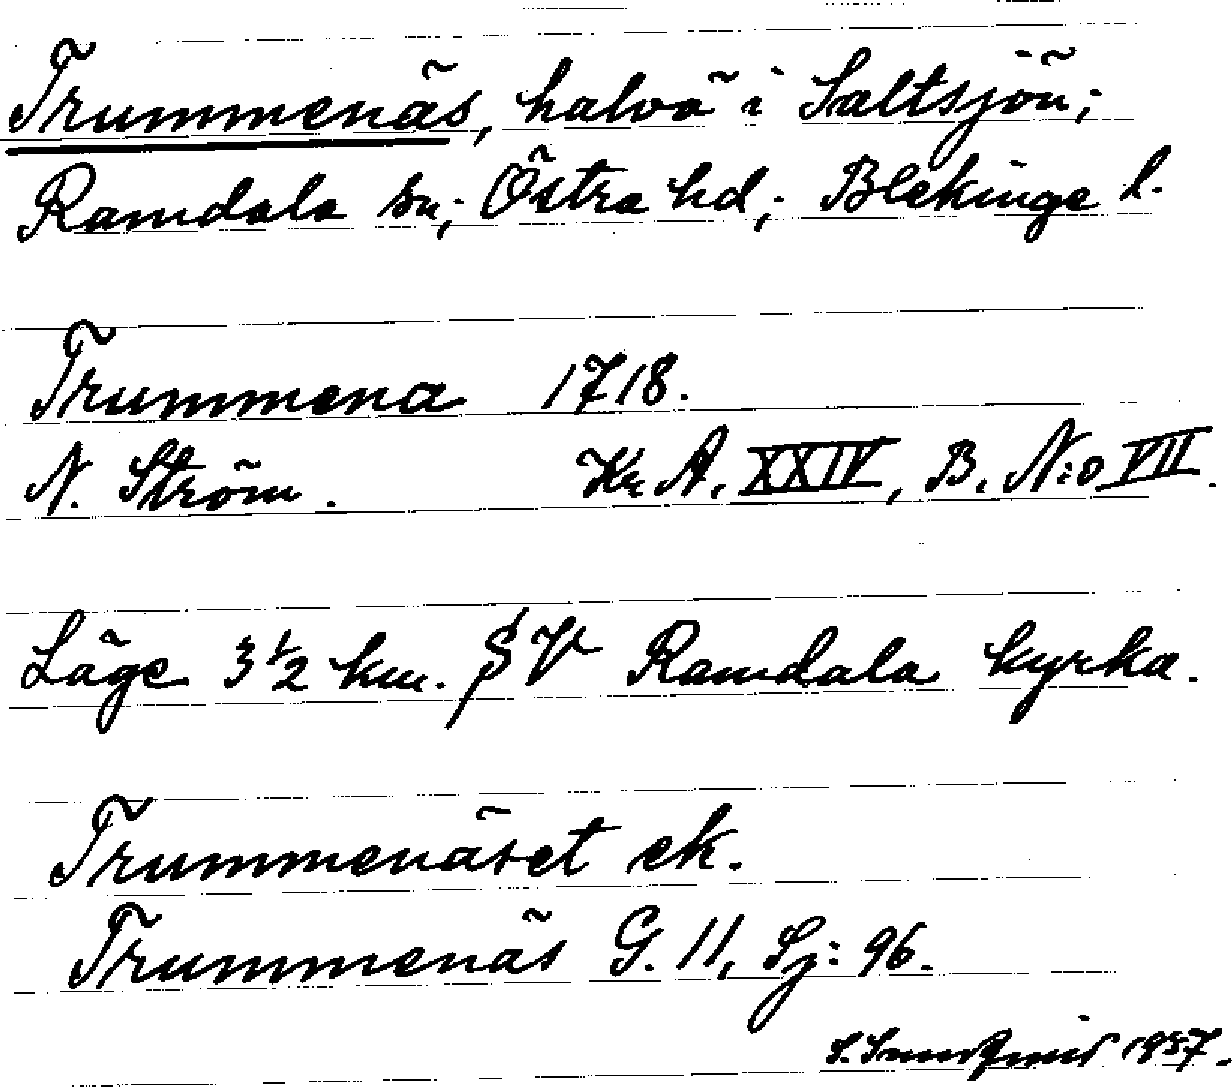 Trummenäs, halvö i Saltsjön;
Ramdala sn; Östra hd; Blekinge l.
Trummena 1718.
N. Ström. Kr A. XXIV, B. N:o VII.
Läge 3 1/2 km. SV Ramdala kyrka.
Trummenäset ek.
Trummenäs G. 11, Sj: 96.
1937.